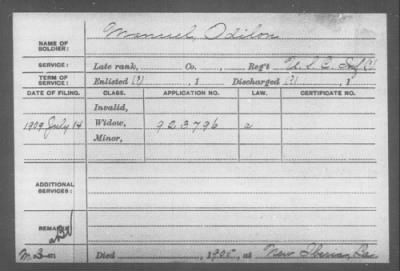 NAME OF SOLDIER: Manuel, Odilon
SERVICE: Late rank, Co. , Reg't U.S.C. Inf
TERM OF SERVICE: Enlisted (?) , 1 Discharged (?) , 1
DATE OF FILING. CLASS. APPLICATION NO. LAW. CERTIFICATE NO.
Invalid,
1909 July 14 Widow, 923796
Minor,
ADDITIONAL SERVICES:
REMARKS
Died , 1905, at New Iberia, La